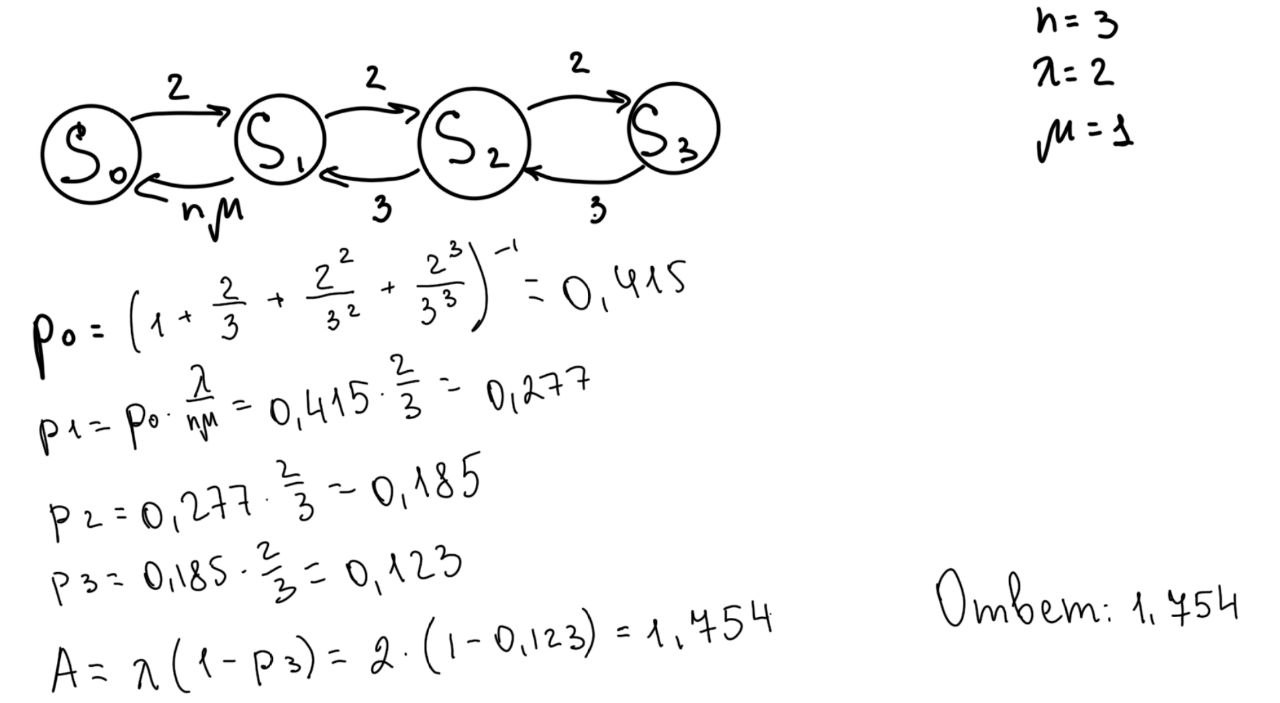 n = 3
λ = 2
μ = 1
2 2 2
S₀ S₁ S₂ S₃
nμ 3 3
p₀ = (1 + 2/3 + 2²/3² + 2³/3³)⁻¹ = 0,415
p1 = p₀ · λ/nμ = 0,415 · 2/3 = 0,277
p2 = 0,277 · 2/3 = 0,185
p3 = 0,185 · 2/3 = 0,123
A = λ(1 - p3) = 2 · (1 - 0,123) = 1,754
Ответ: 1,754